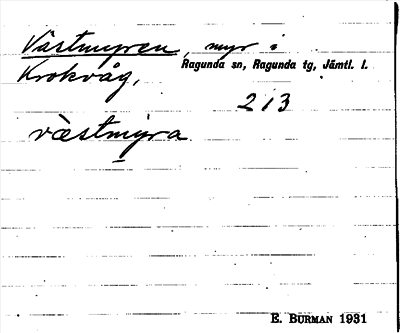 Västmyren, myr i
Krokvåg, Ragunda sn, Ragunda tg, Jämtl. l.
213
væ̀stmyra
E. BURMAN 1931